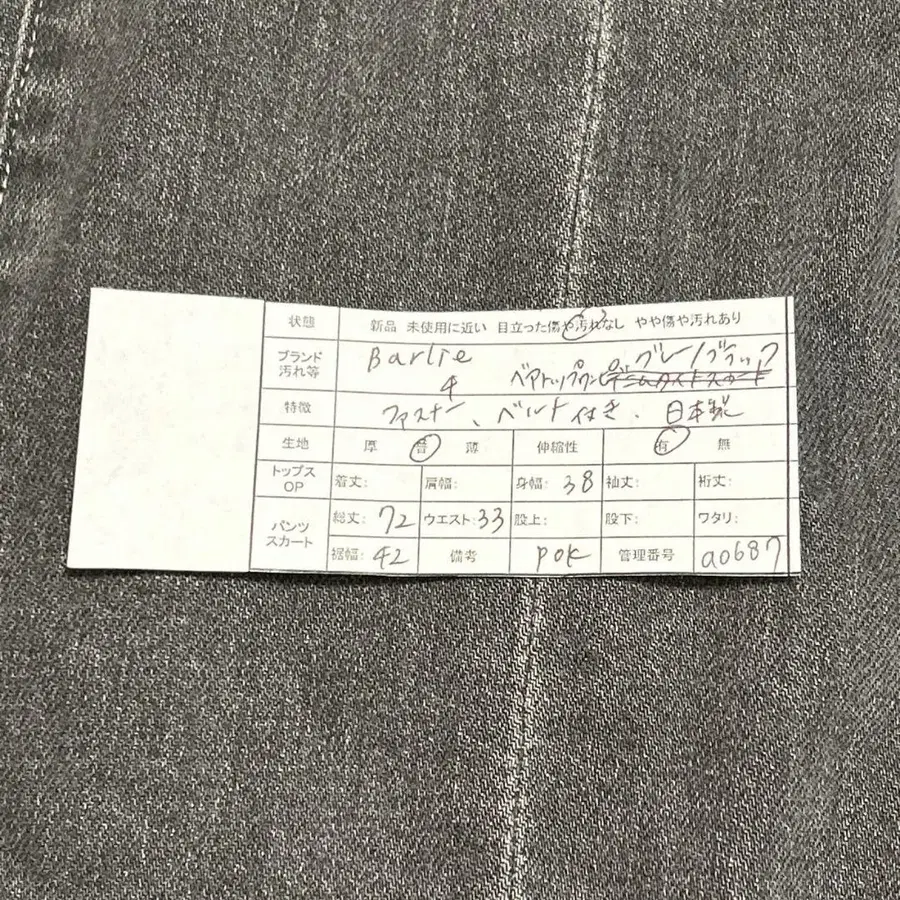 状態 新品 未使用に近い 目立った傷や汚れなし やや傷や汚れあり
ブランド 汚れ等 Barlie グレー/ブラック
4 ベアトップワンピ デニムタイトスカート
特徴 ファスナー、ベルト付き、日本製
生地 厚 普 薄 伸縮性 有 無
トップス OP 着丈: 肩幅: 身幅: 38 袖丈: 裄丈:
パンツ スカート 総丈: 72 ウエスト: 33 股上: 股下: ワタリ:
裾幅: 42 備考 pok 管理番号 a0687